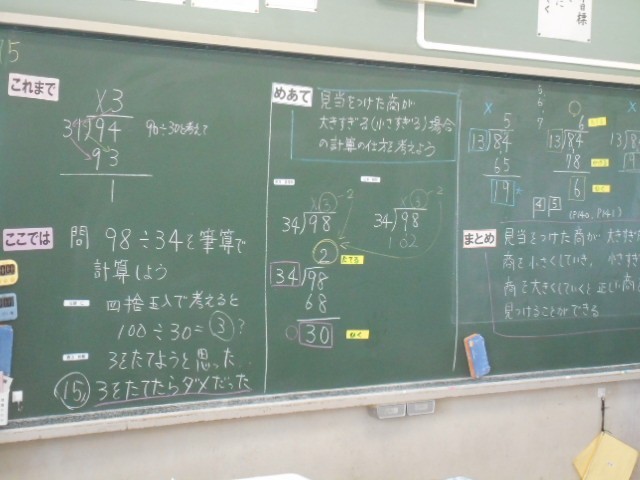 15
これまで
×3
31)94
90÷30と考えて
93
1
ここでは
問 98÷34を筆算で
計算しよう
四捨五入で考えると
100÷30=③?
3をたてようと思った
15, 3をたてたらダメだった
めあて
見当をつけた商が
大きすぎる(小さすぎる)場合
の計算の仕方を考えよう
×3 2
34)98
3 2
34)98
102
2 たてる
34)98
68
30 ひく
5・6・7
× 5
13)84
65
19
6 たてる
13)84
78 かける
6 ひく
×
13)84
4 5
(P140, P141)
まとめ
見当をつけた商が大きすぎ
商を小さくしていき、小さすぎ
商を大きくしていくと正しい商
見つけることができる
目標